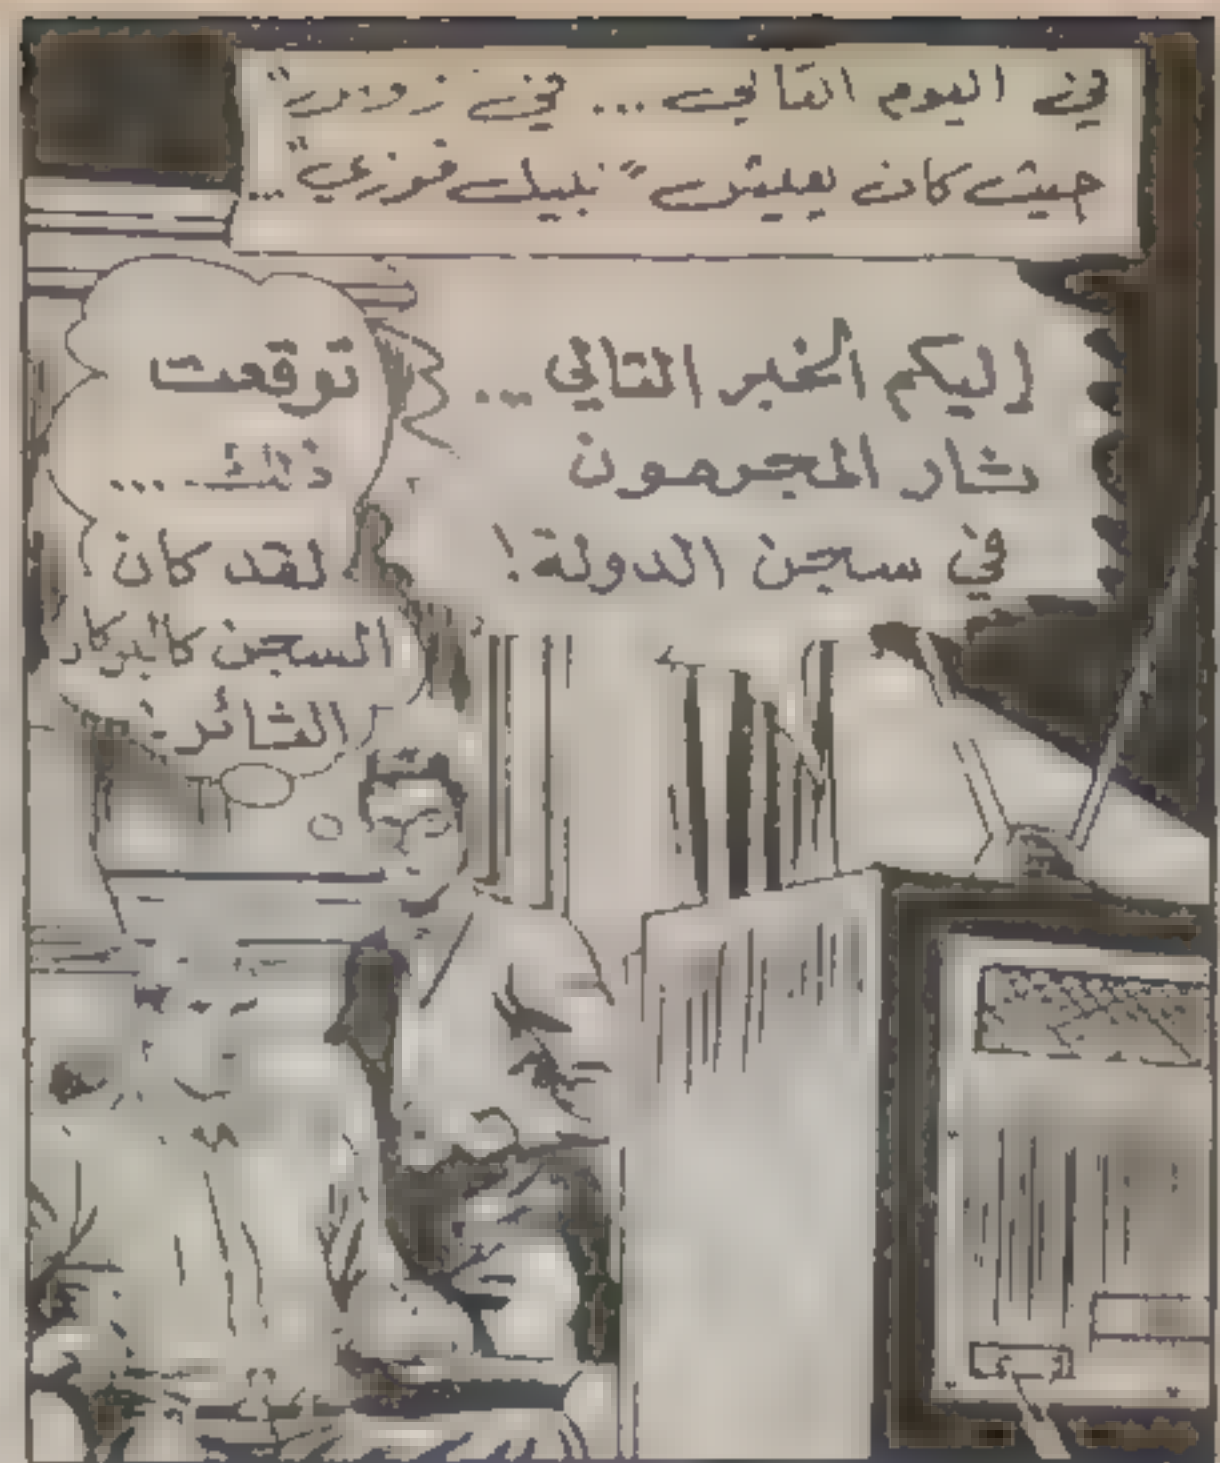 في اليوم التالي... في زودر"
حيث كان يعيش "نبيل فوزي"...
إليكم الخبر التالي...
ثار المجرمون
في سجن الدولة!
توقعت
ذلك...
لقد كان
السجن كالبركان
الثائر.